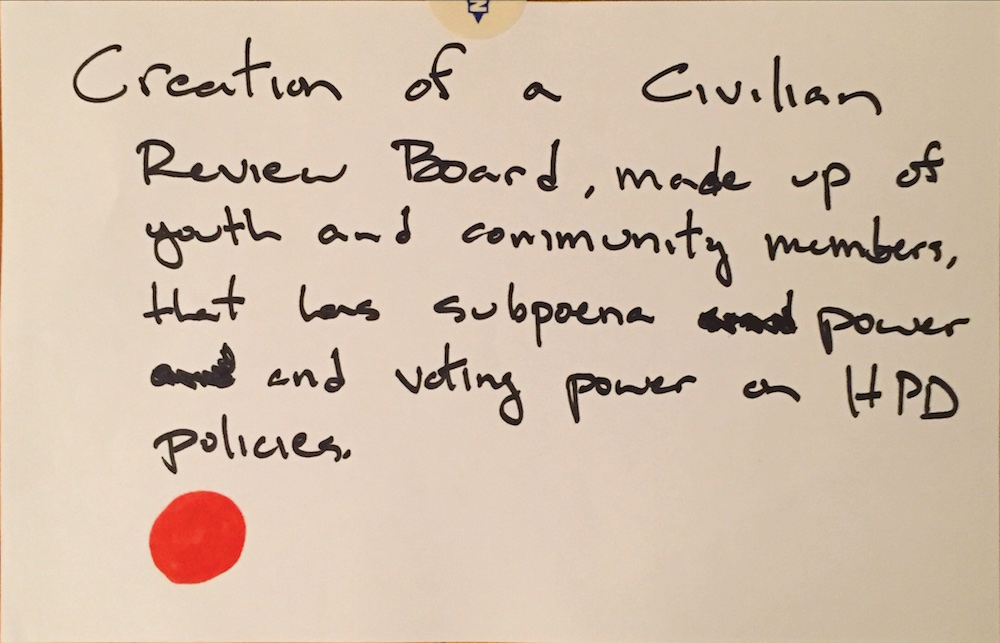 N
Creation of a Civilian
Review Board, made up of
youth and community members,
that has subpoena power
and voting power on HPD
policies.